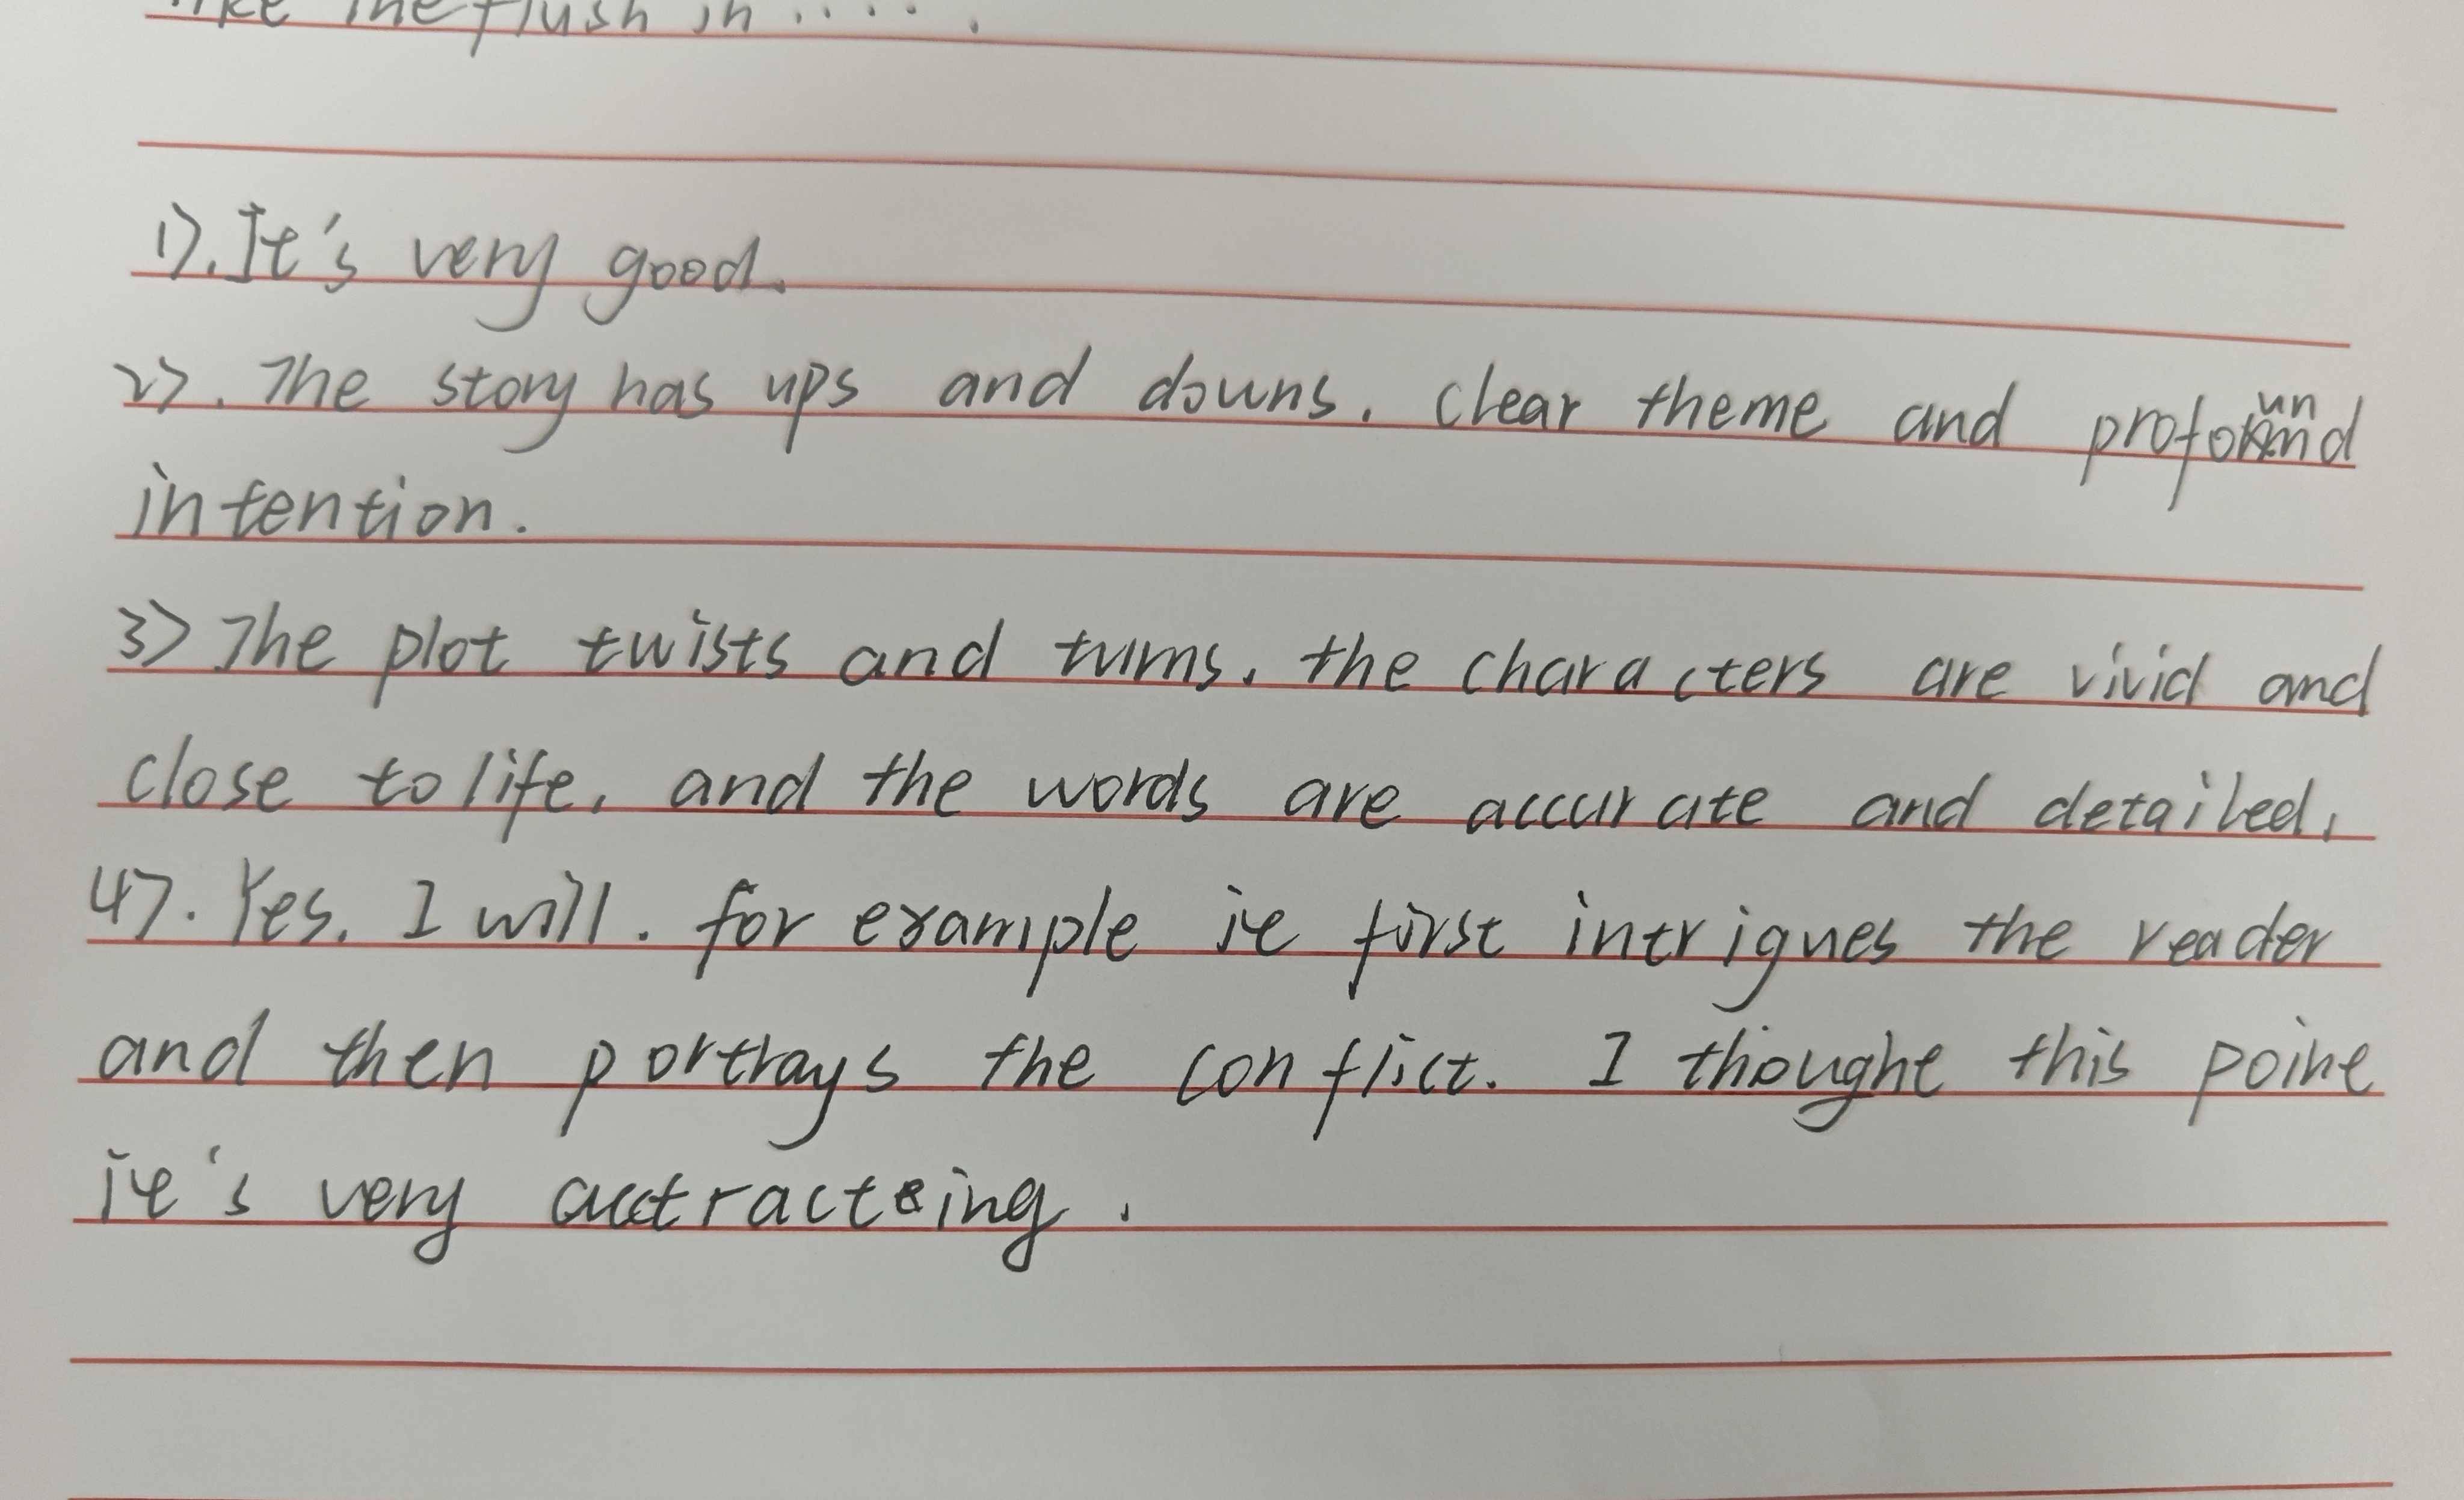 like the flush in .....
1). It's very good.
2). The story has ups and downs. clear theme and profound
intention.
3) The plot twists and turns. the characters are vivid and
close to life. and the words are accurate and detailed.
4). Yes. I will. for example it first intrigues the reader
and then portrays the conflict. I thought this point
it's very attracteing.